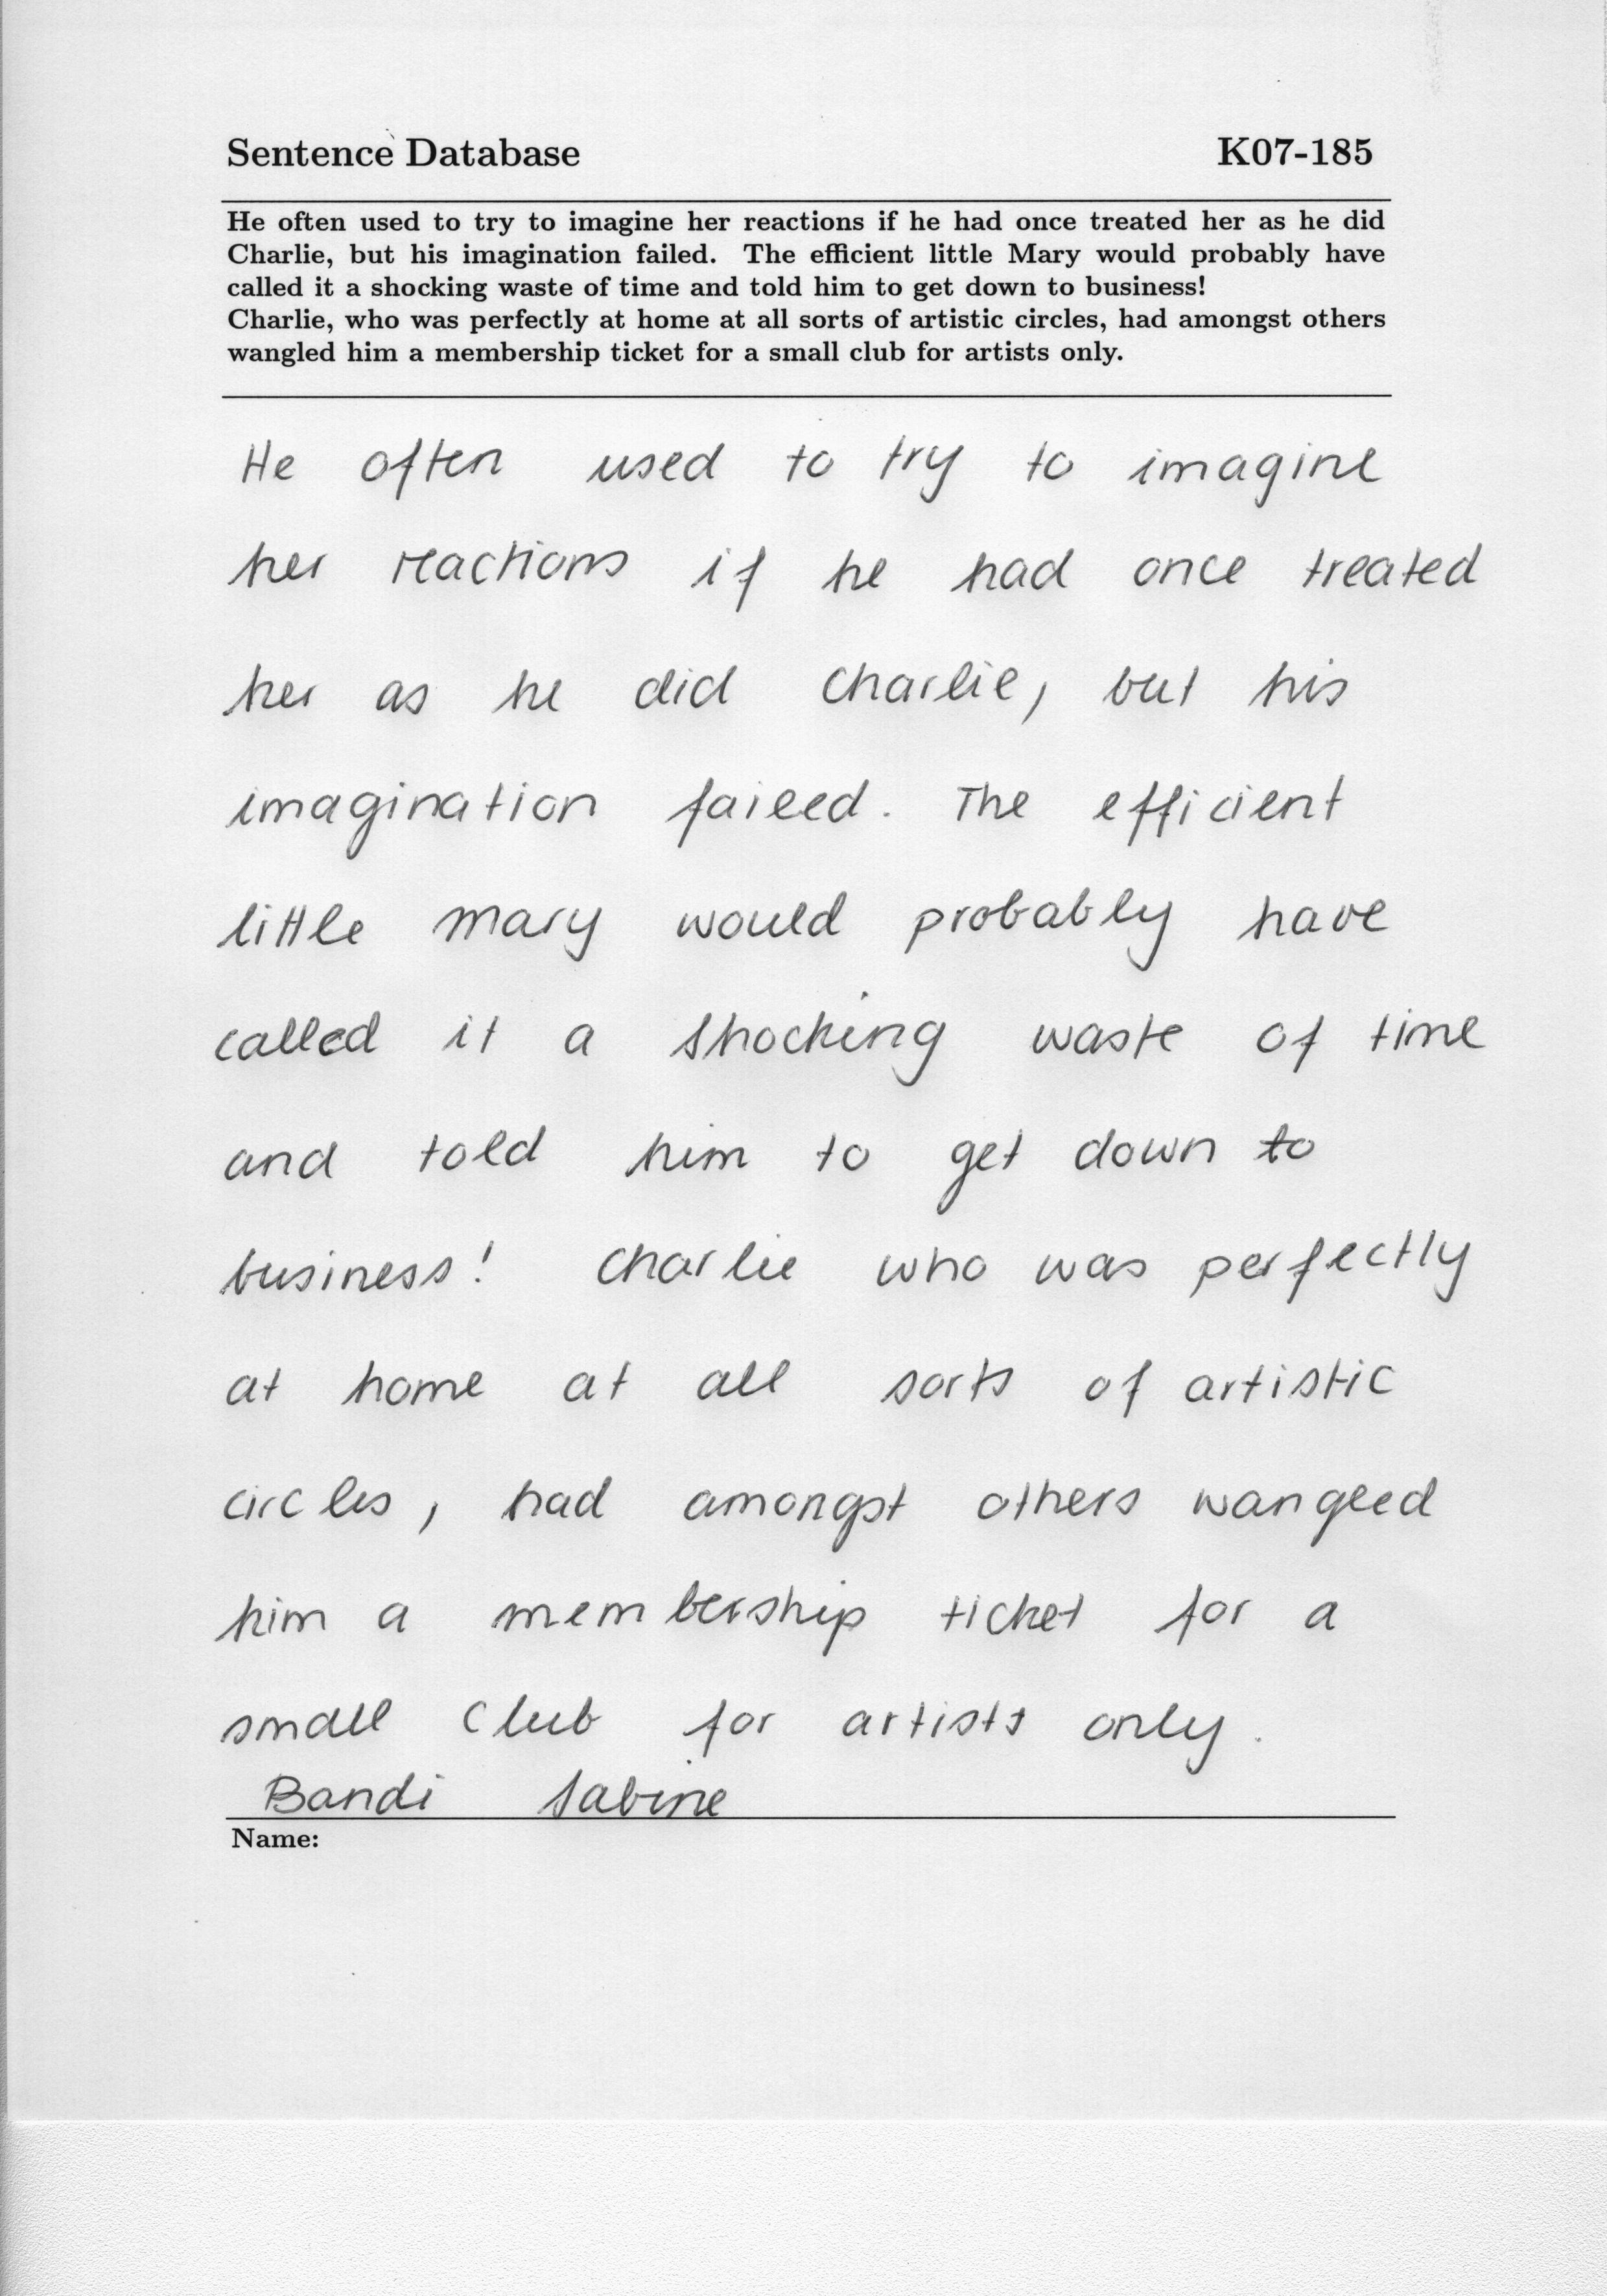 Sentence Database K07-185
He often used to try to imagine her reactions if he had once treated her as he did
Charlie, but his imagination failed. The efficient little Mary would probably have
called it a shocking waste of time and told him to get down to business!
Charlie, who was perfectly at home at all sorts of artistic circles, had amongst others
wangled him a membership ticket for a small club for artists only.
He often used to try to imagine
her reactions if he had once treated
her as he did Charlie, but his
imagination failed. The efficient
little Mary would probably have
called it a shocking waste of time
and told him to get down to
business! Charlie who was perfectly
at home at all sorts of artistic
circles, had amongst others wangled
him a membership ticket for a
small club for artists only.
Bandi Sabine
Name: